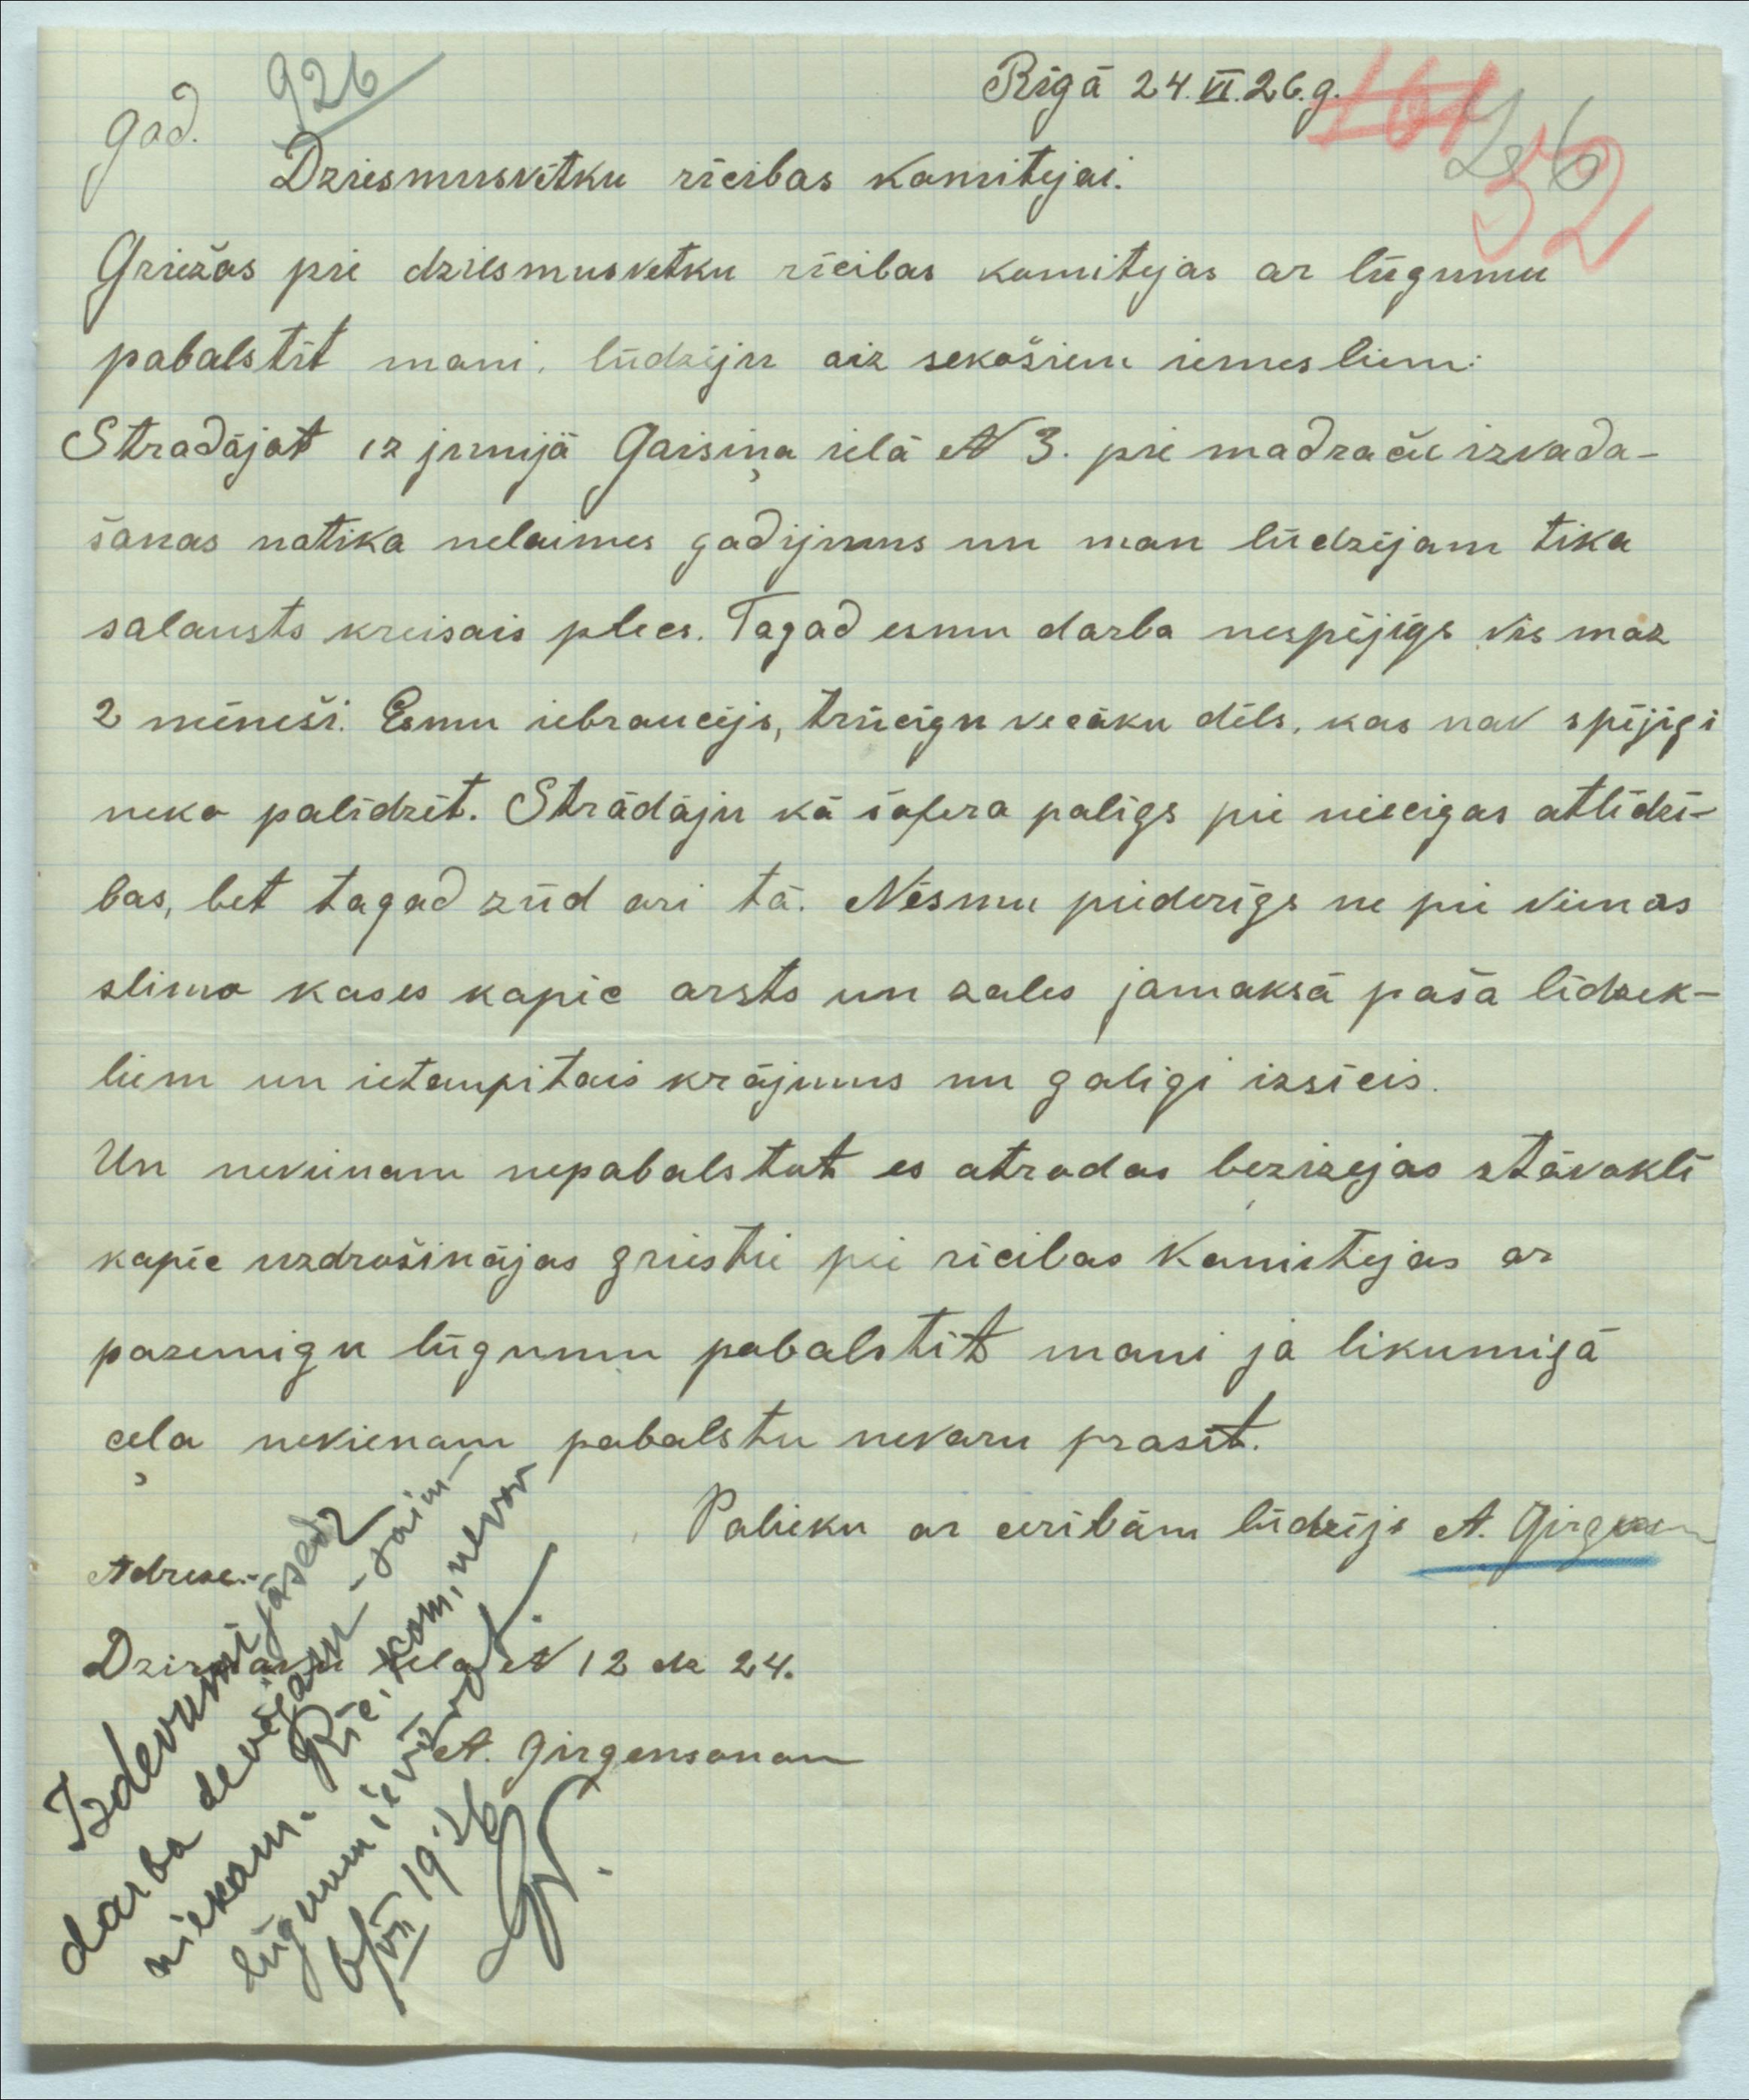 926
Rīgā 24.VI.26.g.
gad.
161
32
Dziesmusvētku rīcibas komitejai.
Griežas pie dziesmusvetku rīcibas komitejas ar lūgumu
pabalstīt mani, lūdzēju aiz sekošiem iemesliem:
Stradājot 12 junijā Gaisiņa ielā N 3. pie madraču izvada-
šanas notika nelaimes gadijums un man lūdzējam tika
salausts kreisais plecs. Tagad esmu darba nespējīgs vis maz
2 mēneši. Esmu iebraucējs, trūcīgu vecāku dēls, kas nav spējīgi
neko palīdzēt. Strādāju kā šofera palīgs pie niecigas atlīdzī-
bas, bet tagad zūd ari tā. Nēsmu piederīgs ne pie vienas
slimo kases kapēc arsts un zales jamaksā paša līdzek-
liem un ietaupitais krājums nu galigi izsīcis.
Un nevienam nepabalstot es atrodas bezizejas stāvoklī
kapēc uzdrošinājas griestie pie rīcibas Komitejas ar
pazemigu lūgumu pabalstīt mani jā likumigā
ceļa nevienam pabalstu nevaru prasīt.
Palieku ar cerībām lūdzējs A. Girgensons
Adrese:
Dzirnavu iela N 12 dz 24.
A. Girgensonam
Izdevumi jāsedz
darba devējam - saim-
niekam. Rīc. kom. nevar
lūgumu ievērot.
6/VII 19 26